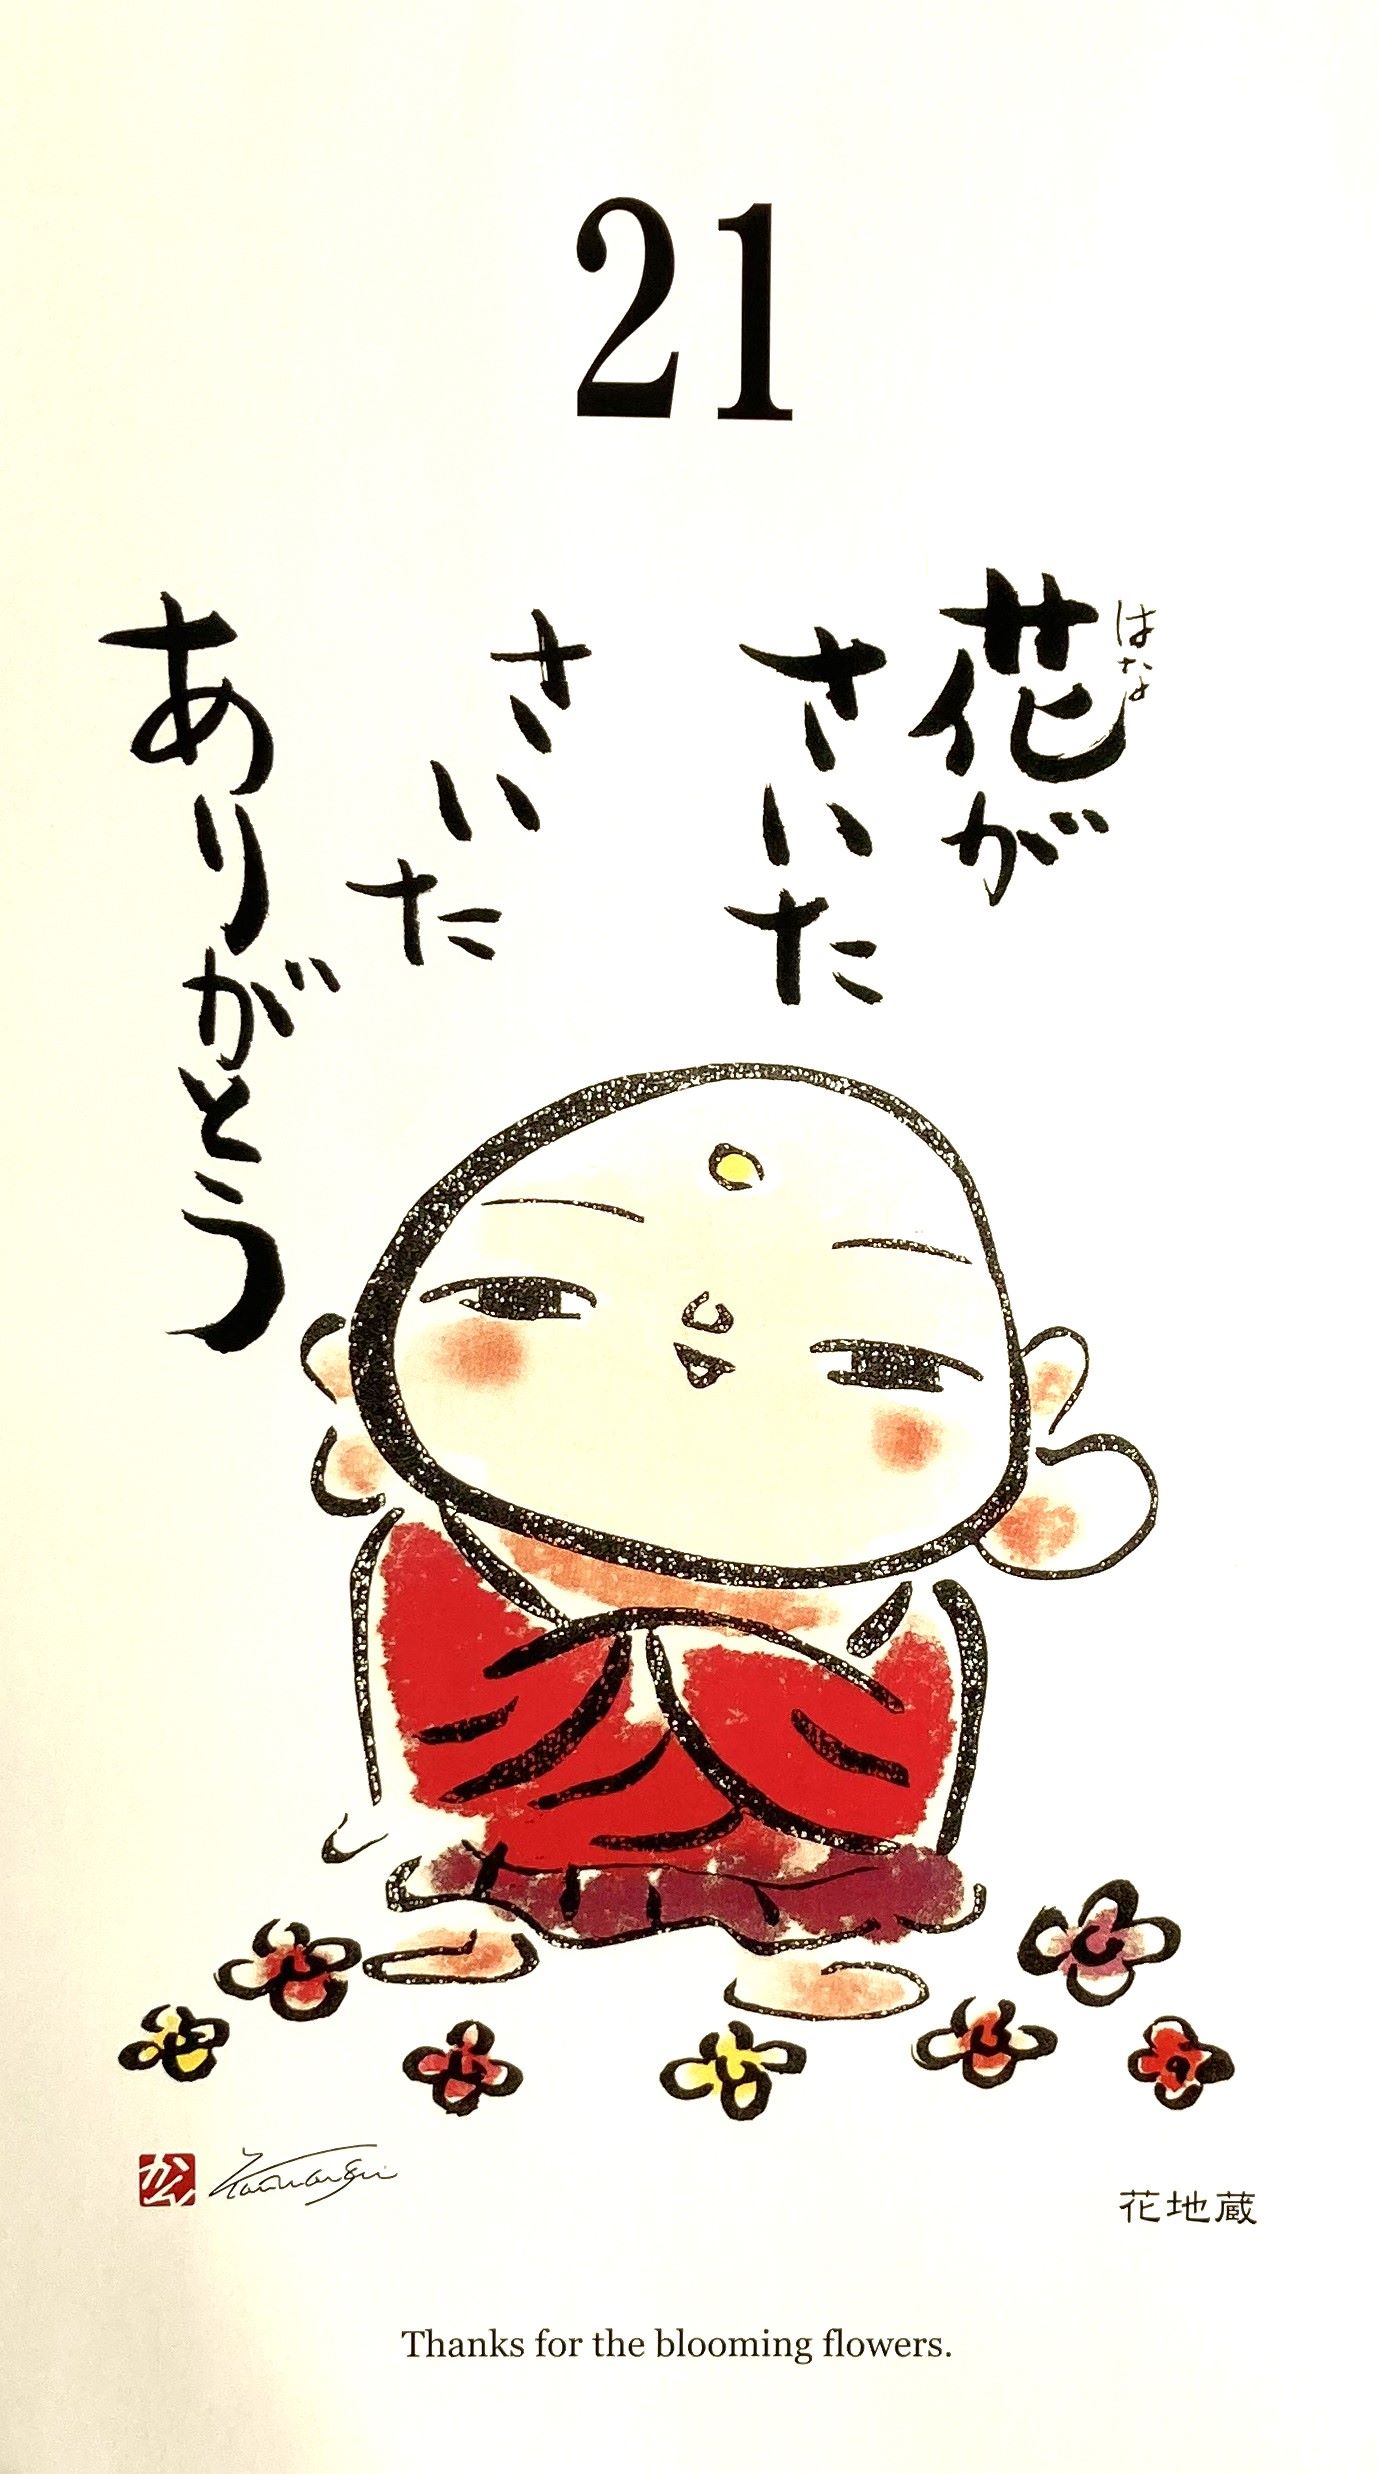 21
花が
はな
さいた
さいた
ありがとう
花地蔵
Thanks for the blooming flowers.